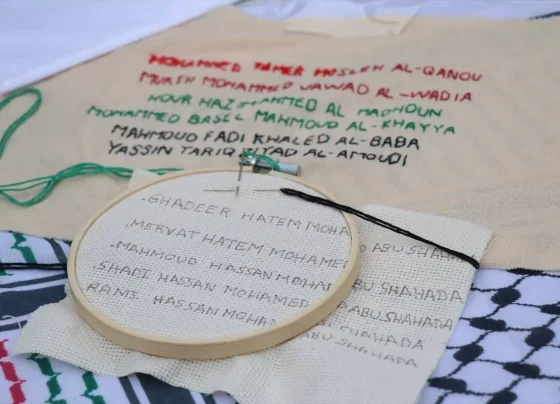 MOHAMMED TAMER MOSLEH AL-QANOU
MUATH MOHAMMED JAWAD AL-WADIA
HOUR HAZIM AHMED AL MADHOUN
MOHAMMED BASEL MAHMOUD AL-KHAYYA
MAHMOUD FADI KHALED AL-BABA
YASSIN TARIQ AL-AMOUDI
.GHADEER HATEM MOHA ABU SHAHADA
.MERVAT HATEM MOHAMED ABU SHAHADA
.MAHMOUD HASSAN MOHAMED ABU SHAHADA
.SHADI HASSAN MOHAMED ABU SHAHADA
.RAMI HASSAN MOHAM ABU SHAHADA